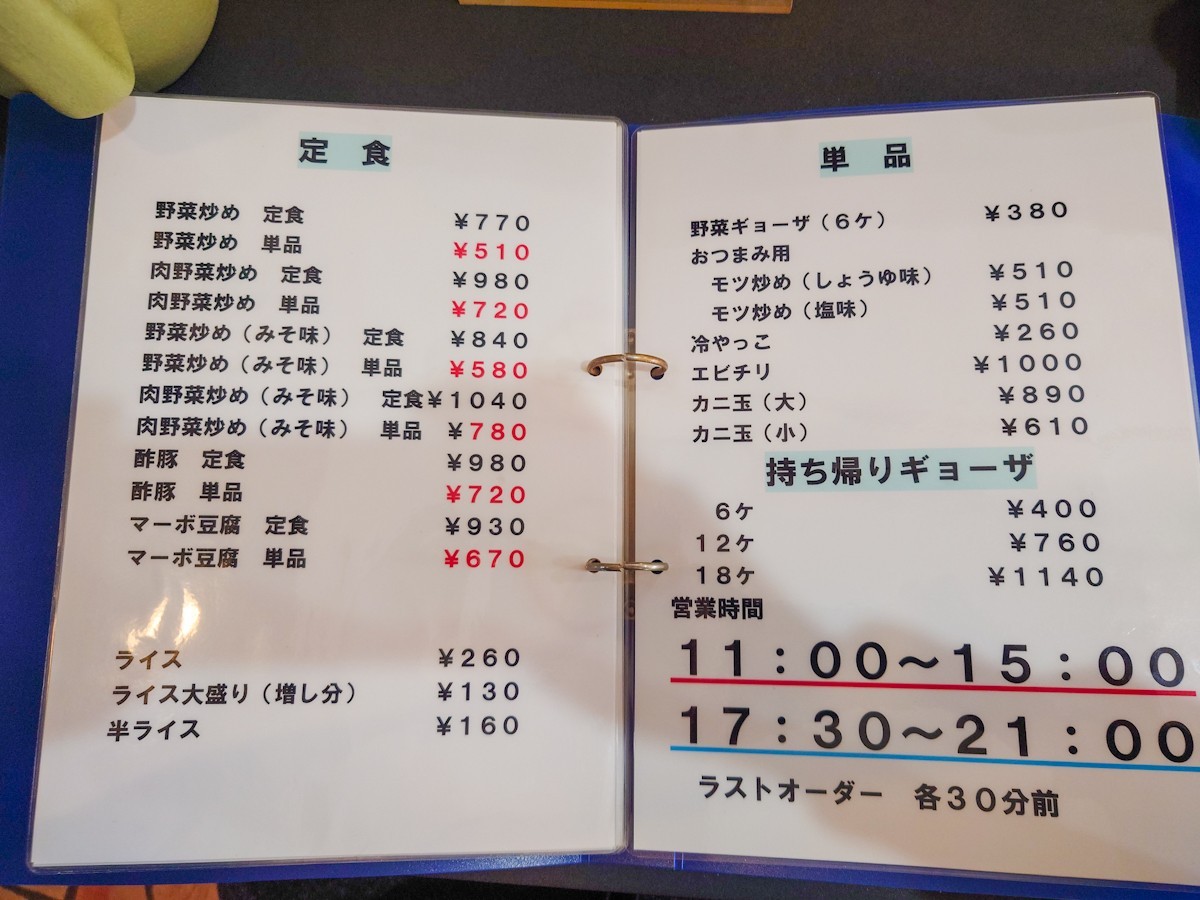 定　食
野菜炒め　定食　¥770
野菜炒め　単品　¥510
肉野菜炒め　定食　¥980
肉野菜炒め　単品　¥720
野菜炒め（みそ味）　定食　¥840
野菜炒め（みそ味）　単品　¥580
肉野菜炒め（みそ味）　定食¥1040
肉野菜炒め（みそ味）　単品　¥780
酢豚　定食　¥980
酢豚　単品　¥720
マーボ豆腐　定食　¥930
マーボ豆腐　単品　¥670
ライス　¥260
ライス大盛り（増し分）　¥130
半ライス　¥160
単　品
野菜ギョーザ（6ケ）　¥380
おつまみ用
モツ炒め（しょうゆ味）　¥510
モツ炒め（塩味）　¥510
冷やっこ　¥260
エビチリ　¥1000
カニ玉（大）　¥890
カニ玉（小）　¥610
持ち帰りギョーザ
6ケ　¥400
12ケ　¥760
18ケ　¥1140
営業時間
11：00～15：00
17：30～21：00
ラストオーダー　各30分前